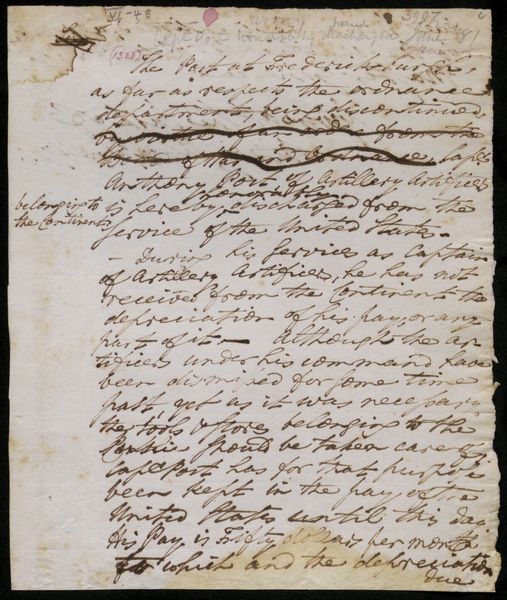 XI-48
3907
Capt Post honorably discharged June 81
(1325)
The Post at Fredericksburgh,
as far as respects the ordnance
department, being discontinued,
in virtue of an order from the
Board of War and Ordnance, Capt
Anthony Post of Artillery Artificers
belonging to
the Continent,
is hereby honorably discharged from the
service of the United States.
- During his services as Captain
of Artillery Artificers, he has not
received from the Continent the
depreciation of his pay, or any
part of it - although the ar
tificers under his command have
been dismissed for some time
past, yet as it was necessary
the tools & stores belonging to the
public should be taken care of
Capt Post has for that purpose
been kept in the pay of the
United States until this day
His Pay is Fifty dollars per month
for which and the depreciation
due